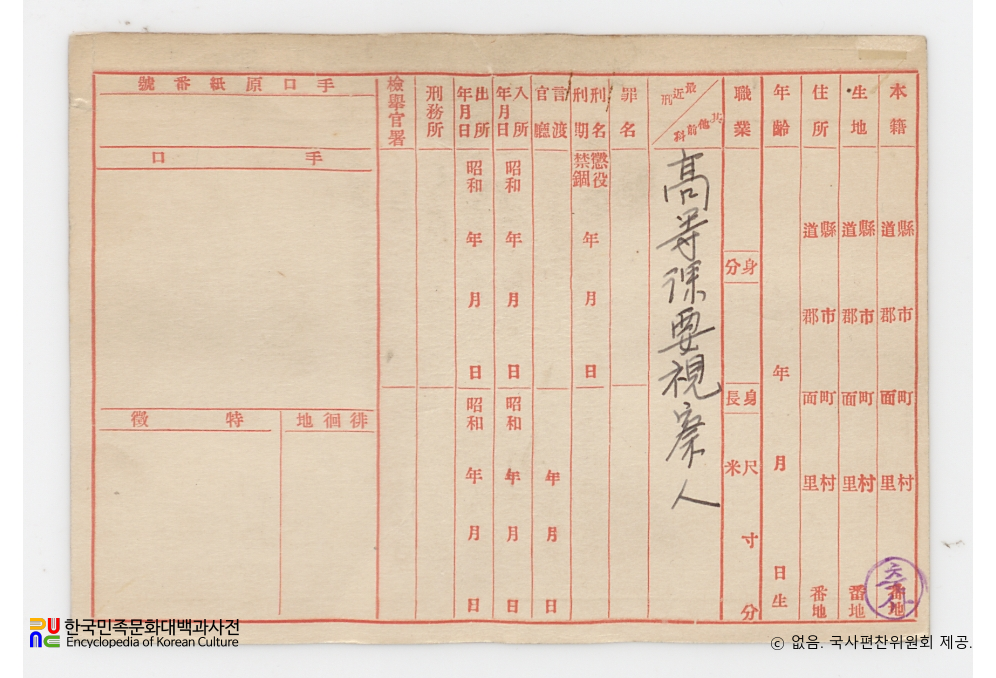 本籍
縣道
市郡
町面
村里
番地
生地
縣道
市郡
町面
村里
番地
住所
縣道
市郡
町面
村里
番地
年齡
年
月
日生
職業
身分
身長
尺米
寸
分
最近刑
其他前科
高等係要視察人
罪名
刑名
刑期
懲役
禁錮
年
月
日
言渡
官廳
年
月
日
入所
年月日
昭和
年
月
日
昭和
年
月
日
出所
年月日
昭和
年
月
日
昭和
年
月
日
刑務所
檢擧官署
手口原紙番號
手口
徘徊地
特徵
한국민족문화대백과사전
Encyclopedia of Korean Culture
ⓒ 없음. 국사편찬위원회 제공.